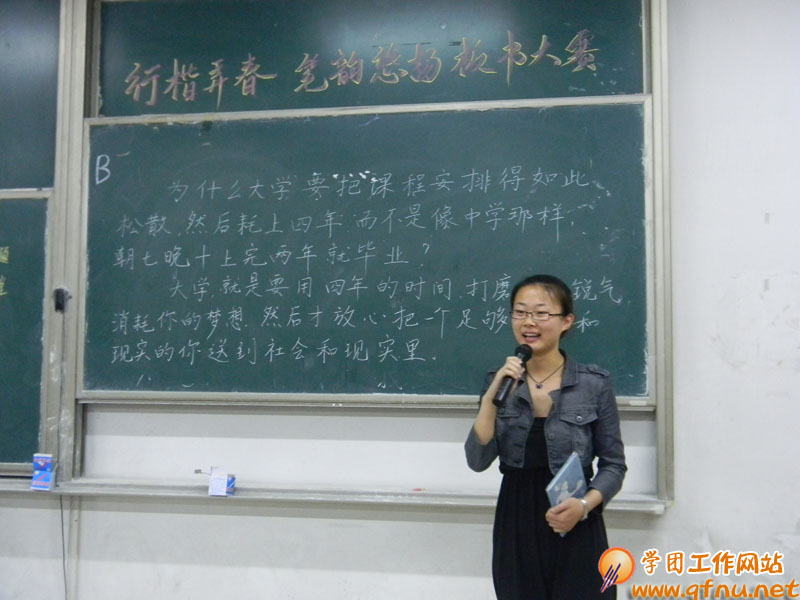 行楷弄春 笔韵悠扬板书大赛
B
为什么大学要把课程安排得如此
松散,然后耗上四年,而不是像中学那样,
朝七晚十上完两年就毕业?
大学,就是要用四年的时间,打磨 锐气,
消耗你的梦想,然后才放心把一个足够 和
现实的你送到社会和现实里.
学团工作网站
www.qfnu.net